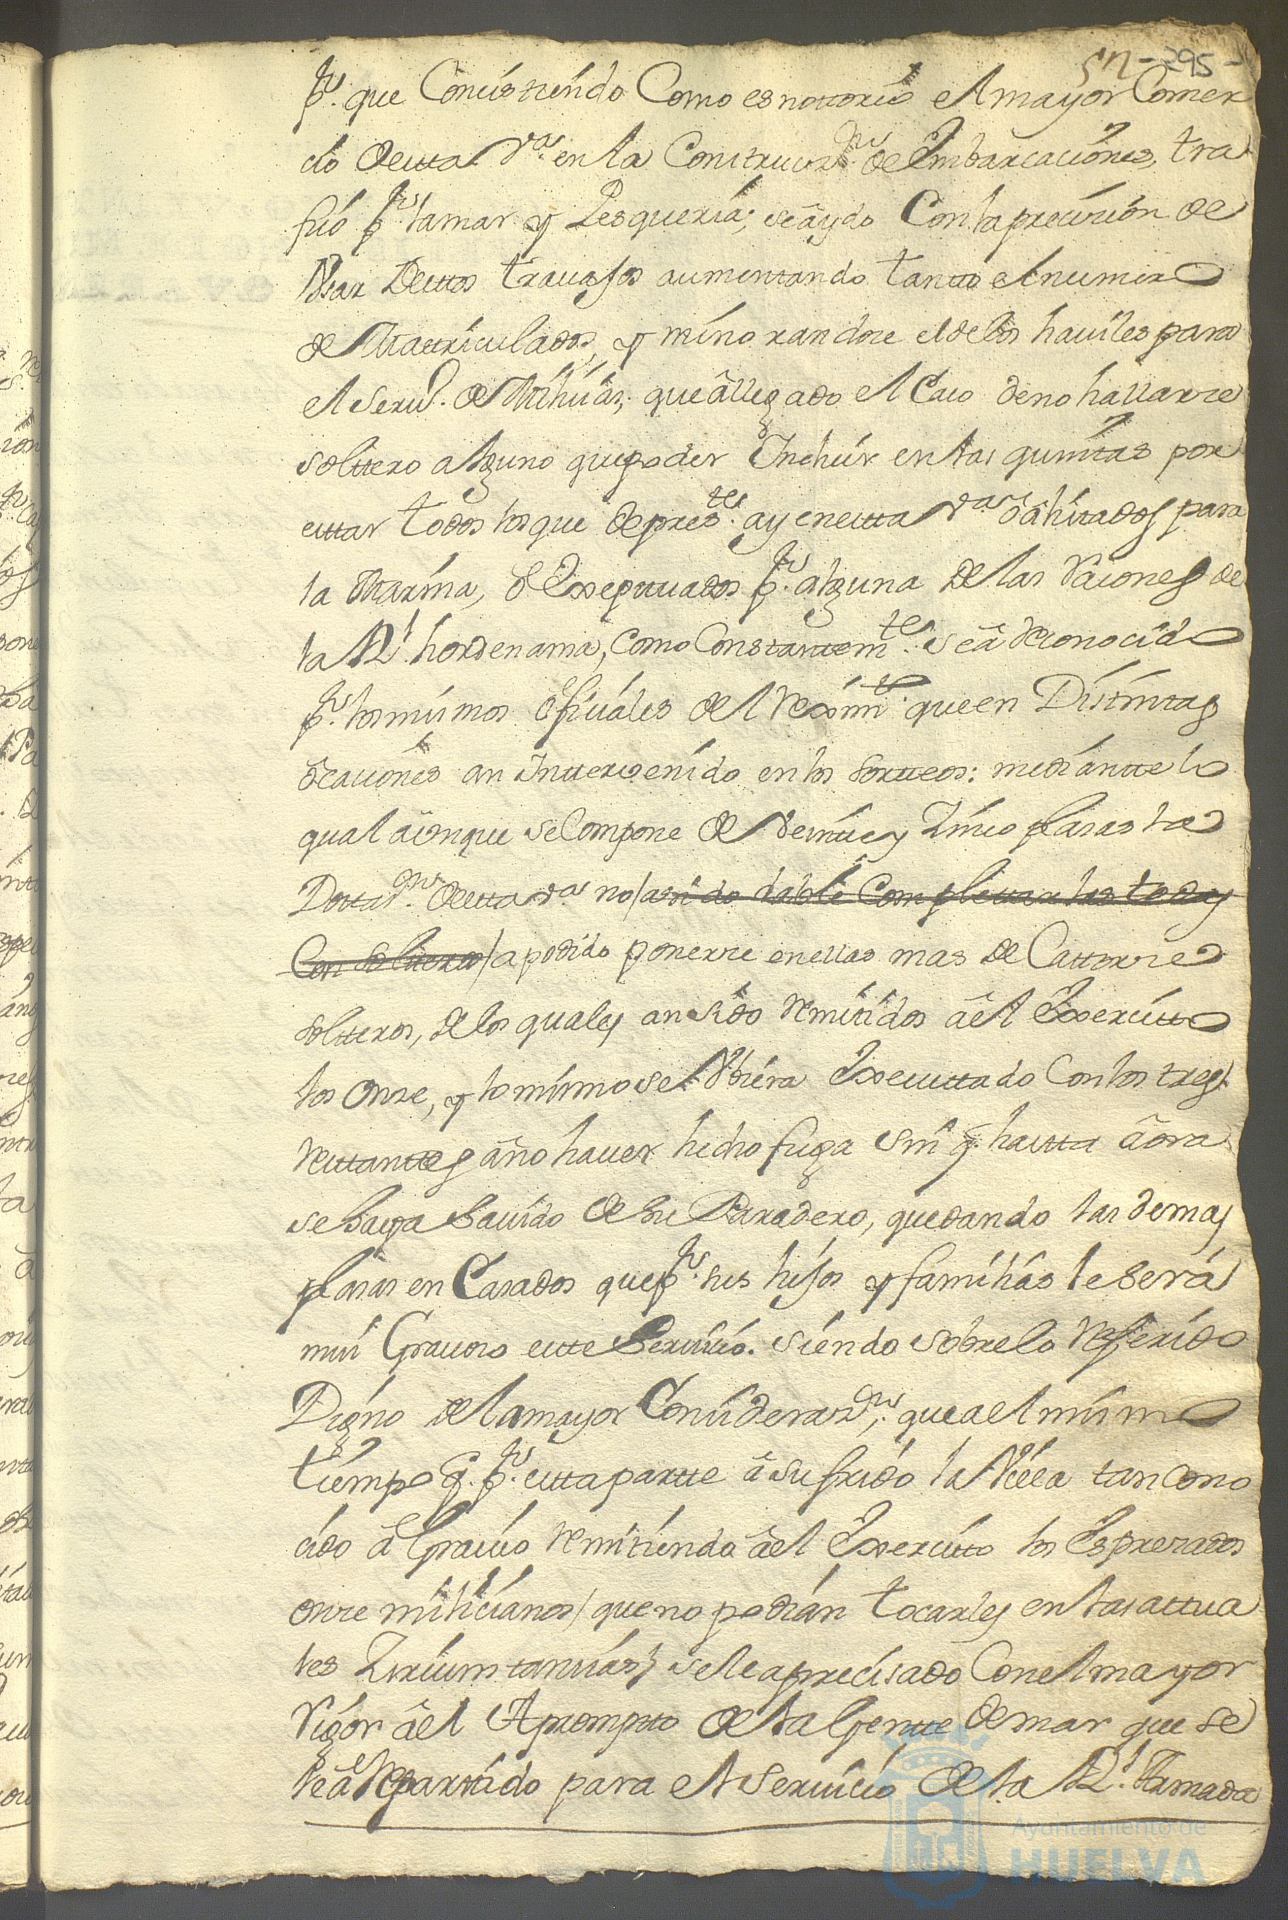 sn - 295 -
pr. que Consistiendo Como es nottorio el mayor Comer
cio de esta va. en la Construczn. de Embarcaciones, tra
fico pr. la mar y Pesqueria; se a ydo Con la precision de
Usar de estos travajos aumentando tanto el numero
de Matriculados, y minorandose el de los haviles para
el servo. de Milicias; que â llegado el Caso de no hallarse
soltero alguno que poder Incluir en las quintas por
estar todos los que de presteS. ay en esta va. âlistados para
la Marina, ô Exseptuados pr. alguna de las raciones de
la Rl. hordenansa, como Constantemte. se â reconocido
pr. los mismos ofiziales del reximto. que en Distintas
ôcaciones an Intervenido en los sorteos: mediante lo
qual aûnque se Compone de veinte y Zinco plasas la
Dottazn. de esta va. no /a sido dable Complettar las todas
Con solteros/ a podido ponerse en ellas mas de Cattorse
solteros, de los quales an sido remitidos â el Exercitto
los onse, y lo mismo se Ubiera Executtado Con los tres
restantes â no haver hecho fuga sin q. hasta âora
se haya Savido de su Paradero, quedando las demas
plasas en Casados que pr. sus hijos y familias le será
mui Gravoso este Servicio. Siendo sobre lo referido
Digno de la mayor Considerazn.; que a el mismo
tiempo q. pr. esta parte â sufrido la Villa tan cono
cido âGravio remitiendo âel Exercito los Espresados
onse milicianos / que no podian tocarles en las actua
les Zircunstancias / se le a precisado Con el mayor
rigor âel Apromptto de la Gente de mar que se
le â repartido para el Servicio de la Rl. Armada
Ayuntamiento de
HUELVA